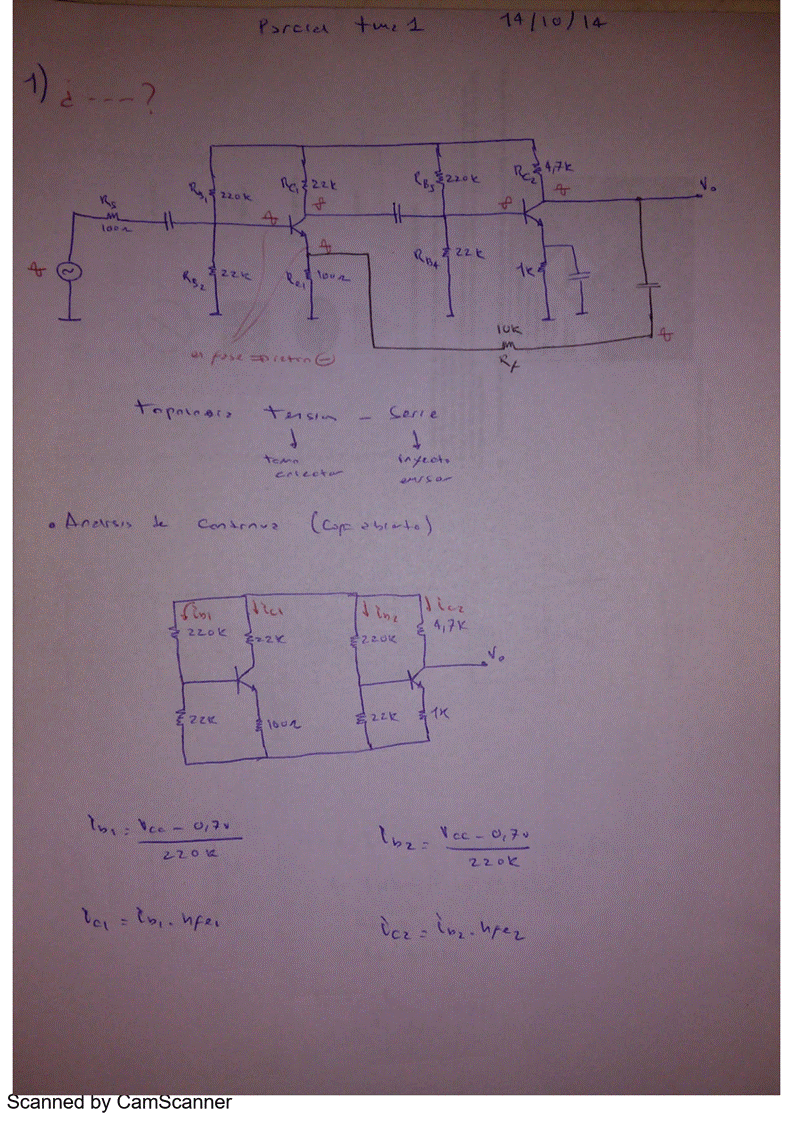 Parcial tme 1 14/10/14
1) ¿ ---- ?
RB1 220K RC1 22K RB3 220K RC2 4,7K Vo
Rs 100Ω
RB2 22K Re1 100Ω RB4 22K 1K
10K
Rf
en fase ⊖
Topología tensión - Serie
↓ ↓
toma inyecto
colector emisor
• Análisis de continua (Cap abierto)
ib1 ic1 ib2 ic2
220K 22K 220K 4,7K
Vo
22K 100Ω 22K 1K
ib1 = Vcc - 0,7v / 220K ib2 = Vcc - 0,7v / 220K
ic1 = ib1 . hfe1 ic2 = ib2 . hfe2
Scanned by CamScanner